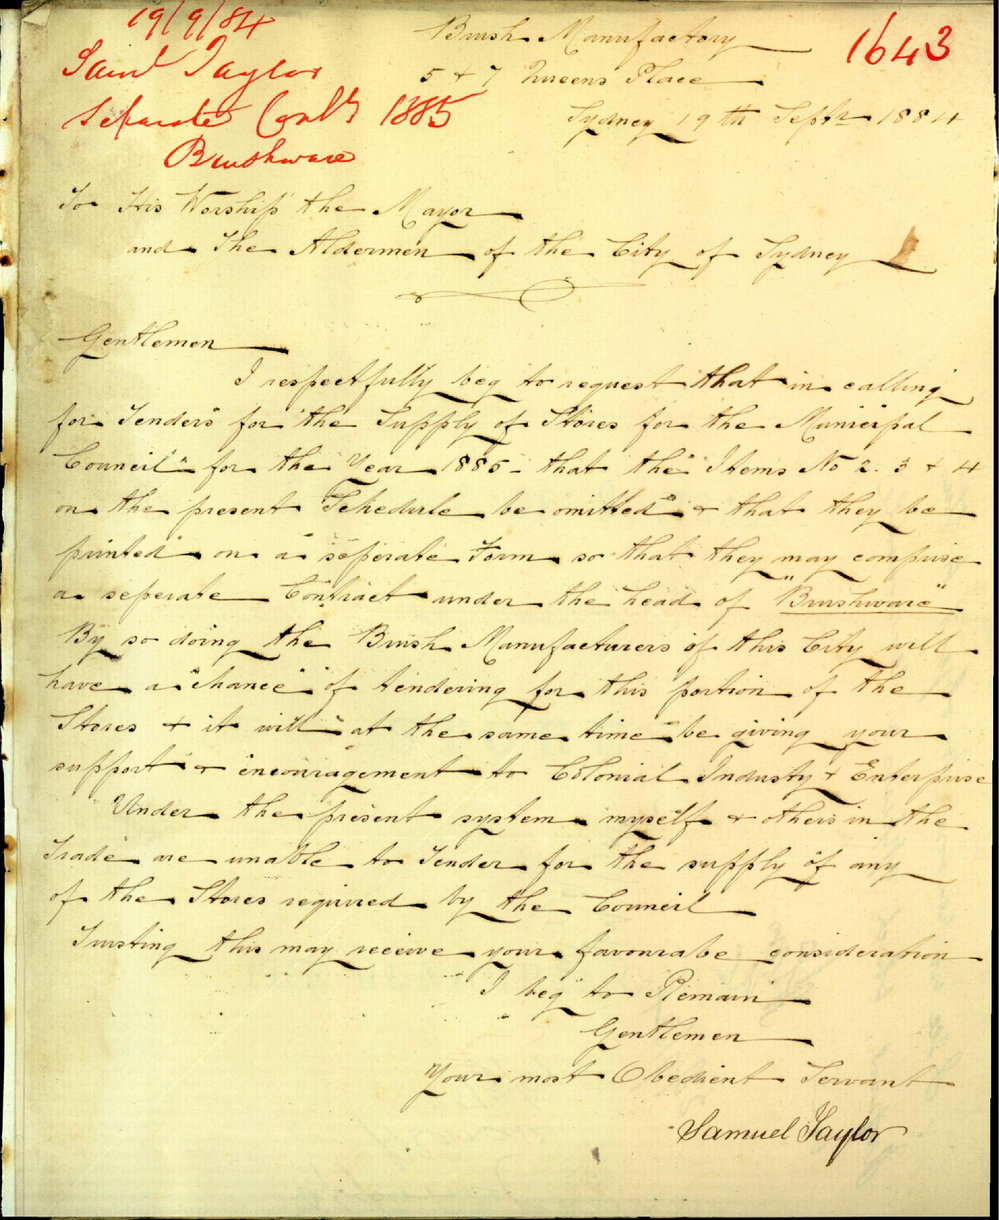 19/9/84
Saml Taylor
Separate Contt 1885
Brushware
1643
Brush Manufactory
5 & 7 Queens Place
Sydney 19th Septr 1884
To His Worship the Mayor
and The Aldermen of the City of Sydney
Gentlemen
I respectfully beg to request that in calling
for Tenders for the Supply of Stores for the Municipal
Council for the Year 1885 - that the Items No 2. 3 & 4
on the present Schedule be omitted & that they be
printed on a seperate Form so that they may comprise
a seperate Contract under the head of "Brushware"
By so doing the Brush Manufacturers of this City will
have a "chance" of tendering for this portion of the
Stores & it will at the same time be giving your
support & encouragement to Colonial Industy & Enterprise
Under the present system myself & others in the
Trade are unable to Tender for the supply of any
of the Stores required by the Council
Trusting this may receive your favourabe consideration
I beg to Remain
Gentlemen
Your most Obedient Servant
Samuel Taylor